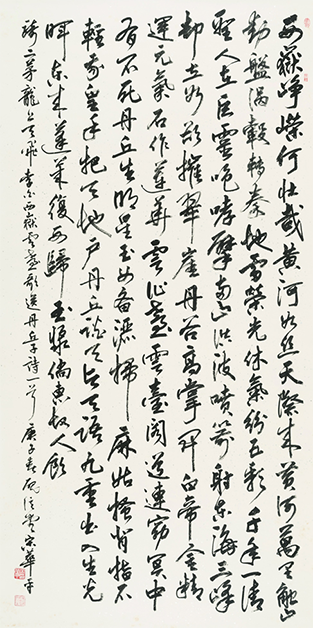 西嶽崢嶸何壯哉黃河如絲天際來黃河萬里觸山
動盤渦轂轉秦地雷榮光休氣紛五彩千年一清
聖人在巨靈咆哮擘兩山洪波噴箭射東海三峰
卻立如欲摧翠崖丹谷高掌開白帝金精
運元氣石作蓮華雲作臺雲臺閣道連窈冥中
有不死丹丘生明星玉女備灑掃麻姑搔背指爪
輕我皇手把天地戶丹丘談天與天語九重出入生光
暉東來蓬萊復西歸玉漿倘惠故人飲
騎二茅龍上天飛李白西嶽雲臺歌送丹丘子詩一首庚子春宗華書